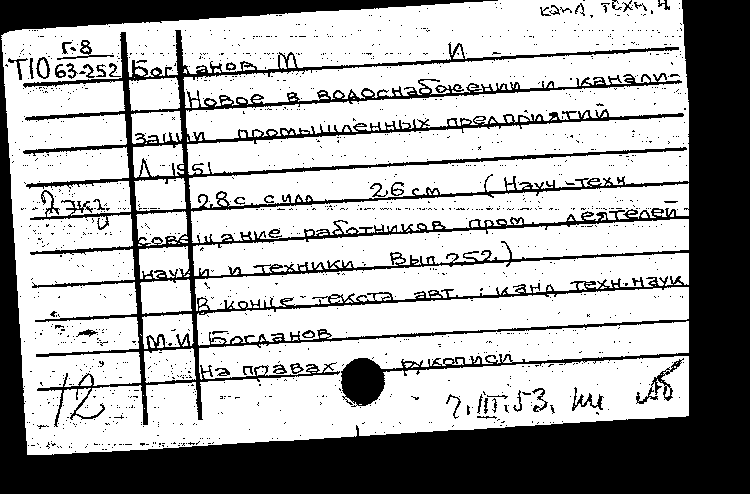 канд. техн. н.
Г-8
Т10 63-252 Богданов, М И
Новое в водоснабжении и канали-
зации промышленных предприятий
Л., 1951
2 экз 28 с. с илл 26 см (Науч-техн
совещание работников пром., деятелей
науки и техники. Вып 252.)
В конце текста авт.: канд техн. наук
М.И. Богданов
На правах рукописи.
12
7.III.53.